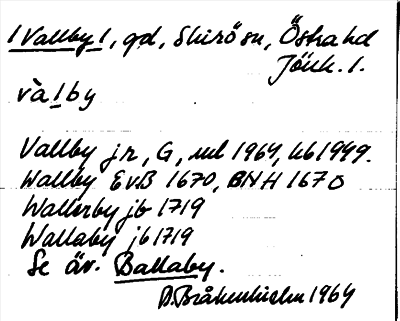 /Vallby/, gd, Skirö sn, Östra hd
Jönk. l.
và l b y
Vallby jr, G, uel 1964, kb 1949.
Wallby EvB 1670, BNH 1670
Wallerby jb 1719
Wallaby jb 1719
Se äv. Ballaby.
D. Bråkenhielm 1964